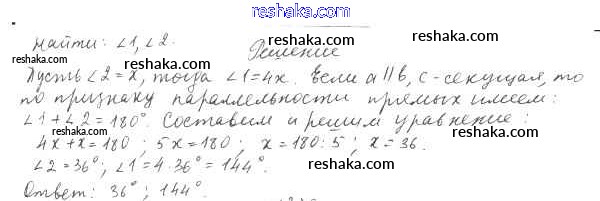 reshaka.com
Найти: ∠1, ∠2. reshaka.com
Решение reshaka.com
reshaka.com
Пусть ∠2 = x, тогда ∠1 = 4x. Если a || b, c - секущая, то
по признаку параллельности прямых имеем:
reshaka.com reshaka.com
∠1 + ∠2 = 180°. Составим и решим уравнение:
4x + x = 180; 5x = 180; x = 180 : 5; x = 36.
∠2 = 36°; ∠1 = 4·36° = 144°. reshaka.com
Ответ: 36°; 144°.
reshaka.com